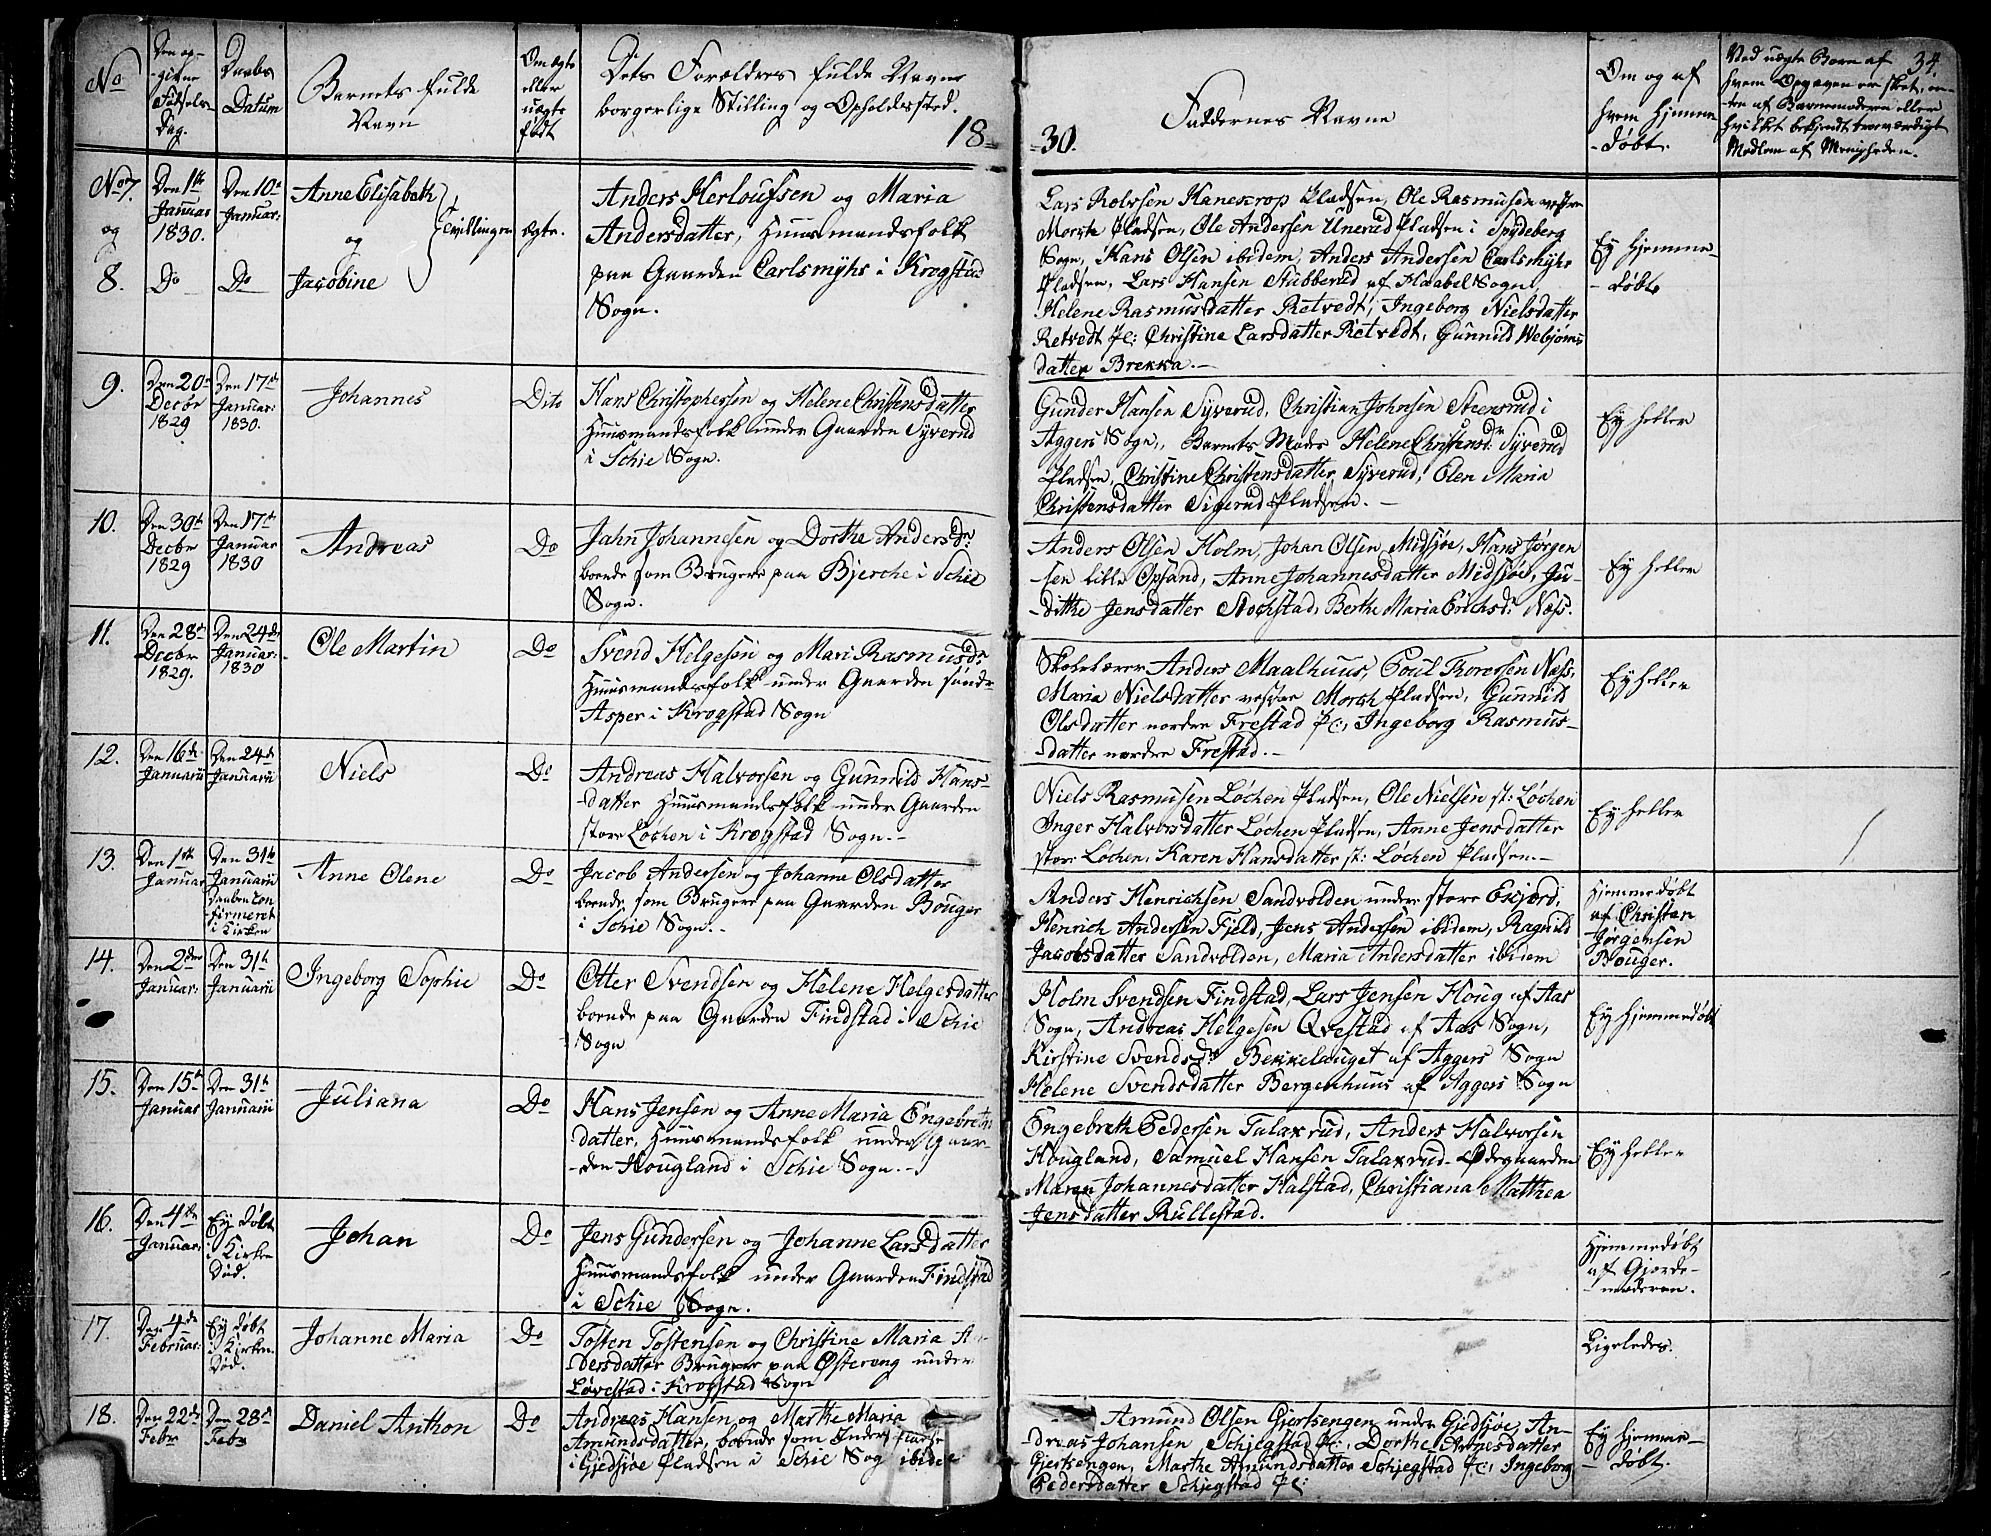 No
Den op-
givne
Fødsels-
Dag.
Daabs
Datum
Barnets fulde
Navn
Om ægte
eller
uægte
født
Dets Forældres fulde Navne
borgerlige Stilling og Opholdssted.
18
30.
Faddernes Navne
Om og af
hvem hjemme
-døbt.
Ved uægte Børn af
hvem Opgaven er skeet, en-
ten af Barnemoderen eller
hvilket bekjendt troværdigt
Medlem af Menigheden.
34.
No 7.
og
8.
Den 1ste
Januar
1830.
Do
Den 10de
Januar:
Do
Anne Elisabeth
og
Jacobine
Tvillinger
Ægte.
Anders Herloufsen og Maria
Andersdatter, Huusmandsfolk
paa Gaarden Carlsmyhr i Krogstad
Sogn.
Lars Rolvsen Haneserop Pladsen, Ole Rasmusen vestre
Morch Pladsen, Ole Andersen Unerud Pladsen i Spydeberg
Sogn, Hans Olsen ibidem, Anders Andersen Carlsmyhr
Pladsen, Lars Hansen Stubberud af Haabel Sogn,
Helene Rasmusdatter Retvedt, Ingeborg Nielsdatter
Retvedt Pl: Christine Larsdatter Retvedt, Gunnild Webjørns
datter Brekka.-
Ey hjemme-
-døbt
9.
Den 20de
Decbr
1829
Den 17de
Januar:
1830.
Johannes
Dito
Hans Christophersen og Helene Christensdatter
Huusmandsfolk under Gaarden Syverud
i Schie Sogn.
Gunder Hansen Syverud, Christian Johnsen Steensrud i
Aggers Sogn, Barnets Mode Helene Christensdr Syverud
Pladsen, Christine Christensdatter Syverud, Elen Maria
Christensdatter Sigerud Pladsen.-
Ey heller
10.
Den 30te
Decbr
1829
Den 17de
Januar
1830
Andreas
Do
Jahn Johannesen og Dorthe Andersdr:
boende som Brugere paa Bjerche i Schie
Sogn.
Anders Olsen Holm, Johan Olsen Midsjøe, Hans Jørgen
sen lille Opsand, Anne Johannesdatter Midsjøe, Ju-
-dithe Jensdatter Stochstad, Berthe Maria Erichsdr. Næs.
Ey heller
11.
Den 28de
Decbr
1829.
Den 24de
Januar:
1830
Ole Martin
Do
Svend Helgesen og Mari Rasmusdr:
Huusmandsfolk under Gaarden søndr
Asper i Krogstad Sogn
Skolelærer Anders Maalhuus, Poul Thoresen Næss,
Maria Nielsdatter vestre Morch Pladsen, Gunnild
Olsdatter nordre Frestad Pl:, Ingeborg Rasmus-
-datter nordre Frestad.-
Ey heller
12.
Den 16de
Januarii
Den 24de
Januarii
Niels
Do
Andreas Halvorsen og Gunnild Hans-
-datter Huusmandsfolk under Gaarden
store Løchen i Krogstad Sogn.-
Niels Rasmusen Løchen Pladsen, Ole Nielsen st: Løchen
Inger Halvorsdatter Løchen Pladsen, Anne Jensdatter
store Løchen, Karen Hansdatter st: Løchen Pladsen.-
Ey heller
13.
Den 1ste
Januar
Den 31te
Januarii
Daaben con
firmeret
i Kirken
Anne Olene
Do
Jacob Andersen og Johanne Olsdatter
boende som Brugere paa Gaarden Bouger
i Schie Sogn.-
Anders Henrichsen Sandvolden under store Esjerd,
Henrich Andersen Fjeld, Jens Andersen ibidem, Ragnild
Jacobsdatter Sandvolden, Maria Andersdatter ibidem
Hjemmedøbt
af Christen
Jørgensen
Bouger.
14.
Den 2den
Januar:
Den 31te
Januarii
Ingeborg Sophie
Do
Otter Svendsen og Helene Helgesdatter
boende paa Gaarden Findstad i Schie
Sogn
Holm Svendsen Findstad, Lars Jensen Houg af Aas
Sogn, Andreas Helgesen Qvestad af Aas Sogn,
Kirstine Svendsdr Bekkelauget af Aggers Sogn
Helene Svendsdatter Bergenhuus af Aggers Sogn
Ey hjemmedøbt
15.
Den 15de
Januar
Den 31te
Januarii
Juliana
Do
Hans Jensen og Anne Maria Engebreths
datter, Huusmandsfolk under Gaar-
-den Hougland i Schie Sogn.-
Engebreth Pedersen Talaxrud, Anders Halvorsen
Hougland, Samuel Hansen Talaxrud-Ødegaarden
Maren Johannesdatter Halstad, Christiana Mathea
Jensdatter Rullestad.
Ey heller
16.
Den 4de
Januar:
Ey døbt
i Kirken
Død.
Johan
Do
Jens Gundersen og Johanne Larsdatter
Huusmandsfolk under Gaarden Findstad
i Schie Sogn.
Hjemmedøbt
af Gjorde-
-moderen.
17.
Den 4de
Februar:
Ey døbt
i Kirken.
Død.
Johanne Maria
Do
Tosten Tostensen og Christine Maria A-
dersdatter Brugere paa Østereng under
Løvestad i Krogstad Sogn
Ligeledes.
18.
Den 22de
Febr
Den 28de
Febr
Daniel Anthon
Do
Andreas Hansen og Marthe Maria
Amundsdatter, boende som Inderstfolk
i Gjedsjøe Pladsen i Schie Sog ibidem
Amund Olsen Gjertsengen under Gjedsjøe, An-
-dreas Johansen Schjegstad Pl:, Dorthe Arnesdatter
Gjertsengen, Marthe Amundsdatter Schjegstad Pl:, Ingeborg
Pedersdatter Schjegstad Pl:
Ey hjemme-
-døbt.